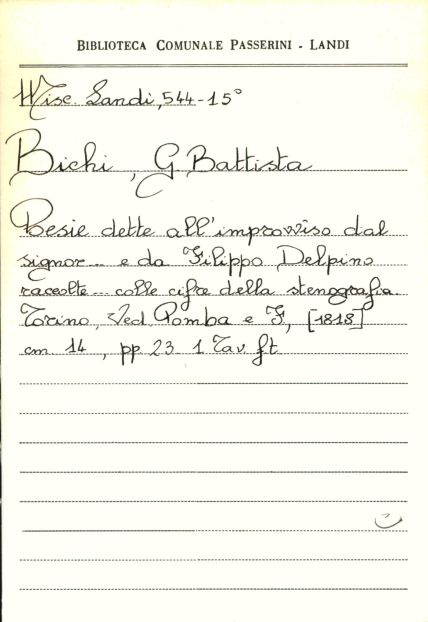 BIBLIOTECA COMUNALE PASSERINI - LANDI
Misc. Landi, 544-15°
Bichi, G. Battista
Poesie dette all'improvviso dal
signor... e da Filippo Delpino
raccolte... colle cifre della stenografia
Torino, Ved. Pomba e F., [1818]
cm 14, pp 23 1 Tav. ft